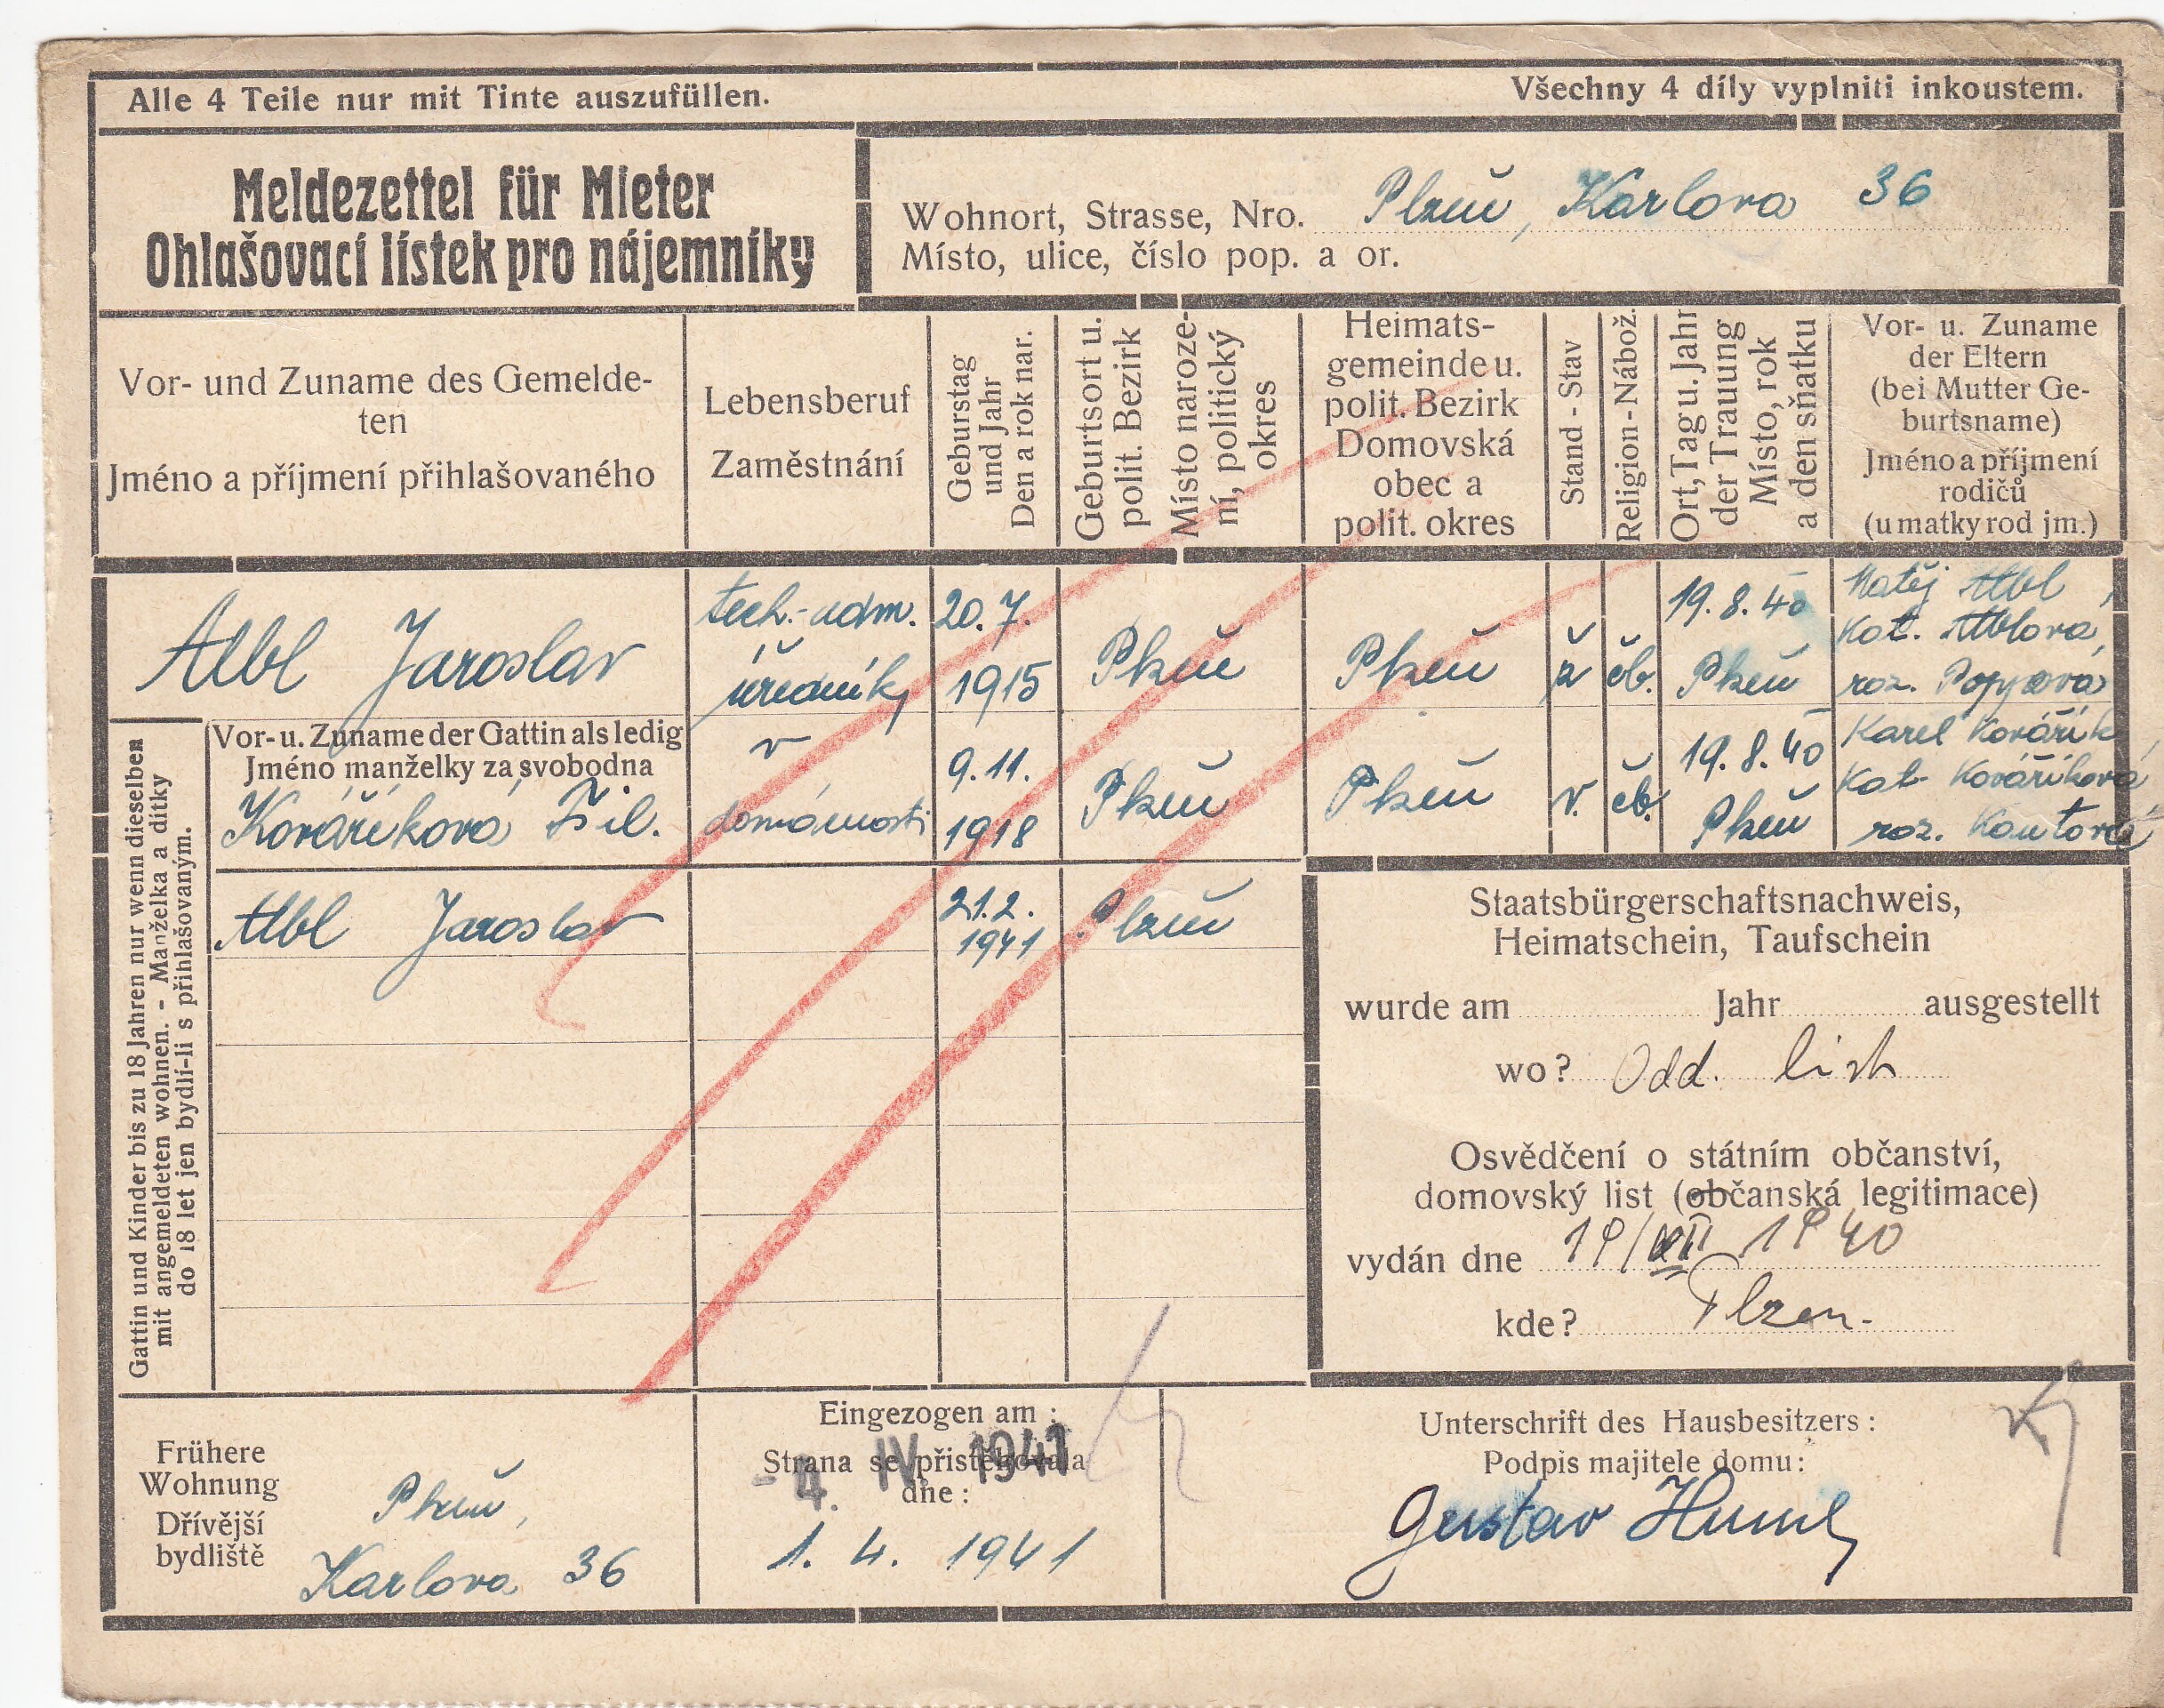 Alle 4 Teile nur mit Tinte auszufüllen.
Všechny 4 díly vyplniti inkoustem.
Meldezettel für Mieter
Ohlašovací lístek pro nájemníky
Wohnort, Strasse, Nro. Plzeň, Karlova 36
Místo, ulice, číslo pop. a or.
Vor- und Zuname des Gemelde-
ten
Jméno a příjmení přihlašovaného
Lebensberuf
Zaměstnání
Geburstag
und Jahr
Den a rok nar.
Geburtsort u.
polit. Bezirk
Místo naroze-
ní, politický
okres
Heimats-
gemeinde u.
polit. Bezirk
Domovská
obec a
polit. okres
Stand - Stav
Religion - Nábož.
Ort, Tag u. Jahr
der Trauung
Místo, rok
a den sňatku
Vor- u. Zuname
der Eltern
(bei Mutter Ge-
burtsname)
Jméno a příjmení
rodičů
(u matky rod jm.)
Albl Jaroslav
tech.-adm.
úředník
20. 7.
1915
Plzeň
Plzeň
ž
čb.
19. 8. 40
Plzeň
Matěj Albl,
Kat. Alblová,
roz. Popp
Gattin und Kinder bis zu 18 Jahren nur wenn dieselben
mit angemeldeten wohnen. - Manželka a dítky
do 18 let jen bydlí-li s přihlašovaným.
Vor- u. Zuname der Gattin als ledig
Jméno manželky za svobodna
Kovaříková Fil.
v
domácnosti
9. 11.
1918
Plzeň
Plzeň
v.
čb.
19. 8. 40
Plzeň
Karel Kovářík,
Kat. Kováříková,
roz. Kantorová
Albl Jaroslav
21. 2.
1941
Plzeň
Staatsbürgerschaftsnachweis,
Heimatschein, Taufschein
wurde am Jahr ausgestellt
wo? Odd. list
Osvědčení o státním občanství,
domovský list (občanská legitimace)
vydán dne 19/VIII 1940
kde? Plzen.
Frühere
Wohnung
Dřívější
bydliště
Plzeň,
Karlova 36
Eingezogen am :
Strana se přistěhovala
dne :
- 4. IV. 1941
1. 4. 1941
Unterschrift des Hausbesitzers :
Podpis majitele domu :
Gustav